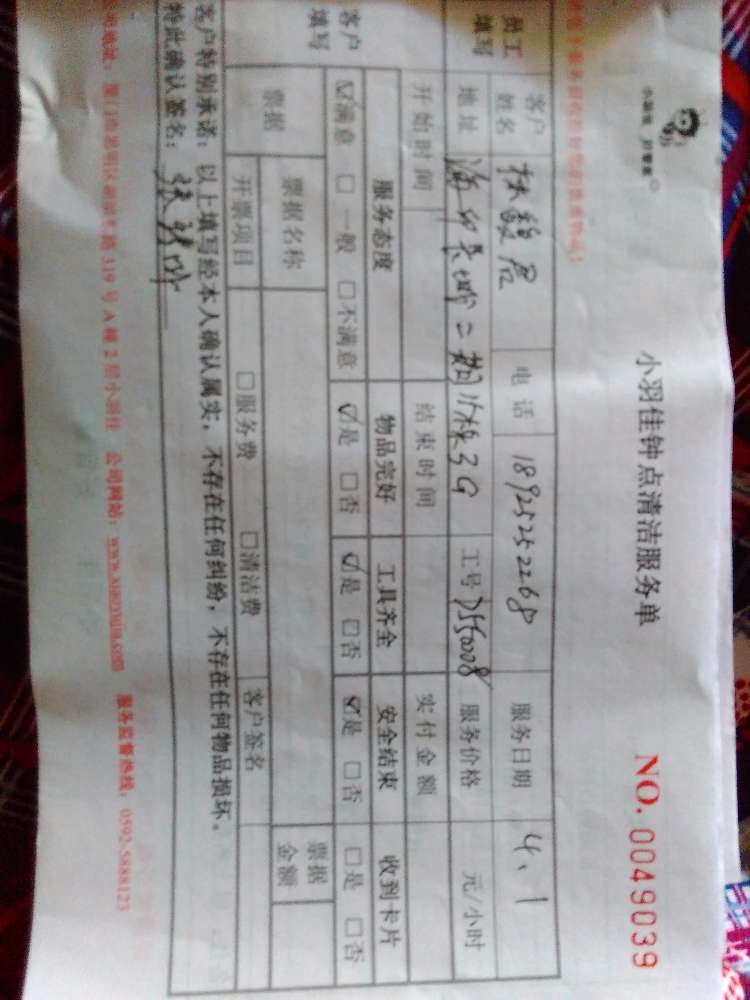 小羽佳钟点清洁服务单
NO. 0049039
员工填写
客户姓名 林 君 电话 18925252268 服务日期 4.1
地址 长城二 3G 工号 服务价格 元/小时
开始时间 结束时间 实付金额
客户填写
服务态度 物品完好 工具齐全 安全结束 收到卡片
☑满意 □一般 □不满意 ☑是 □否 ☑是 □否 ☑是 □否 □是 □否
票据 票据名称 票据金额
开票项目 □服务费 □清洁费 客户签名
客户特别承诺：以上填写经本人确认属实，不存在任何纠纷，不存在任何物品损坏。
特此确认签名：张
公司地址：厦门市思明区 路 319 号 A 幢 2 层小羽佳 公司网站：www.xiaoyujia.com 服务监督热线：0592-5888123